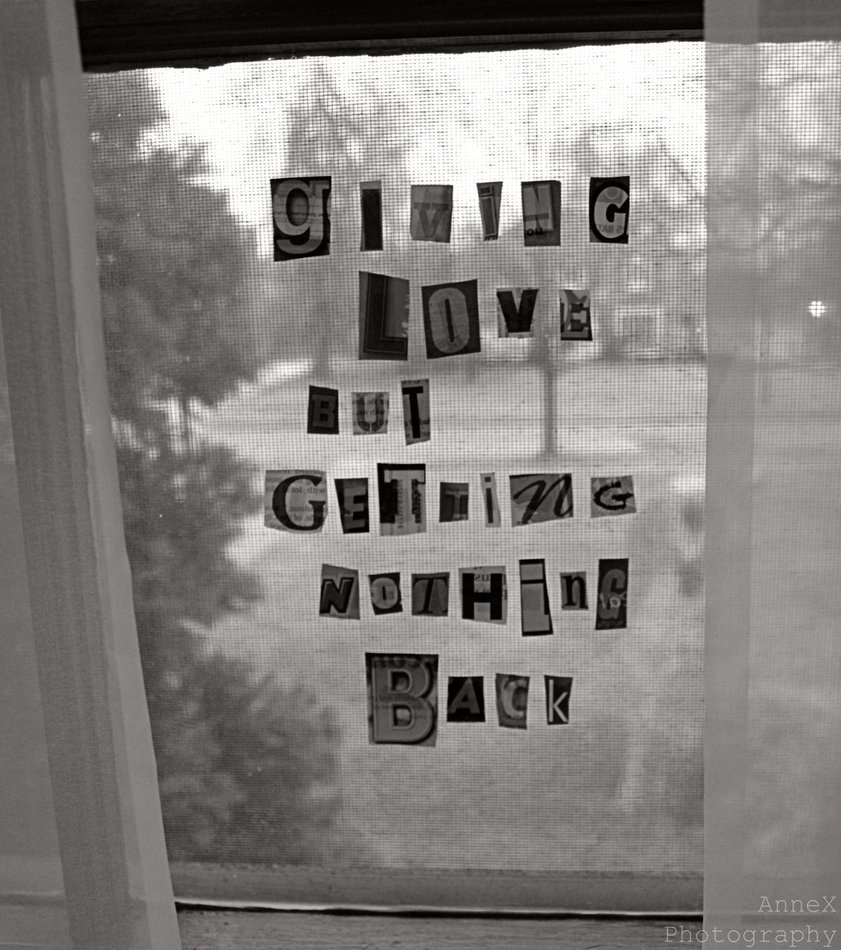 giViNG
LOVE
BUT
GETTiNG
NOTHinG
BACk
AnneX
Photography